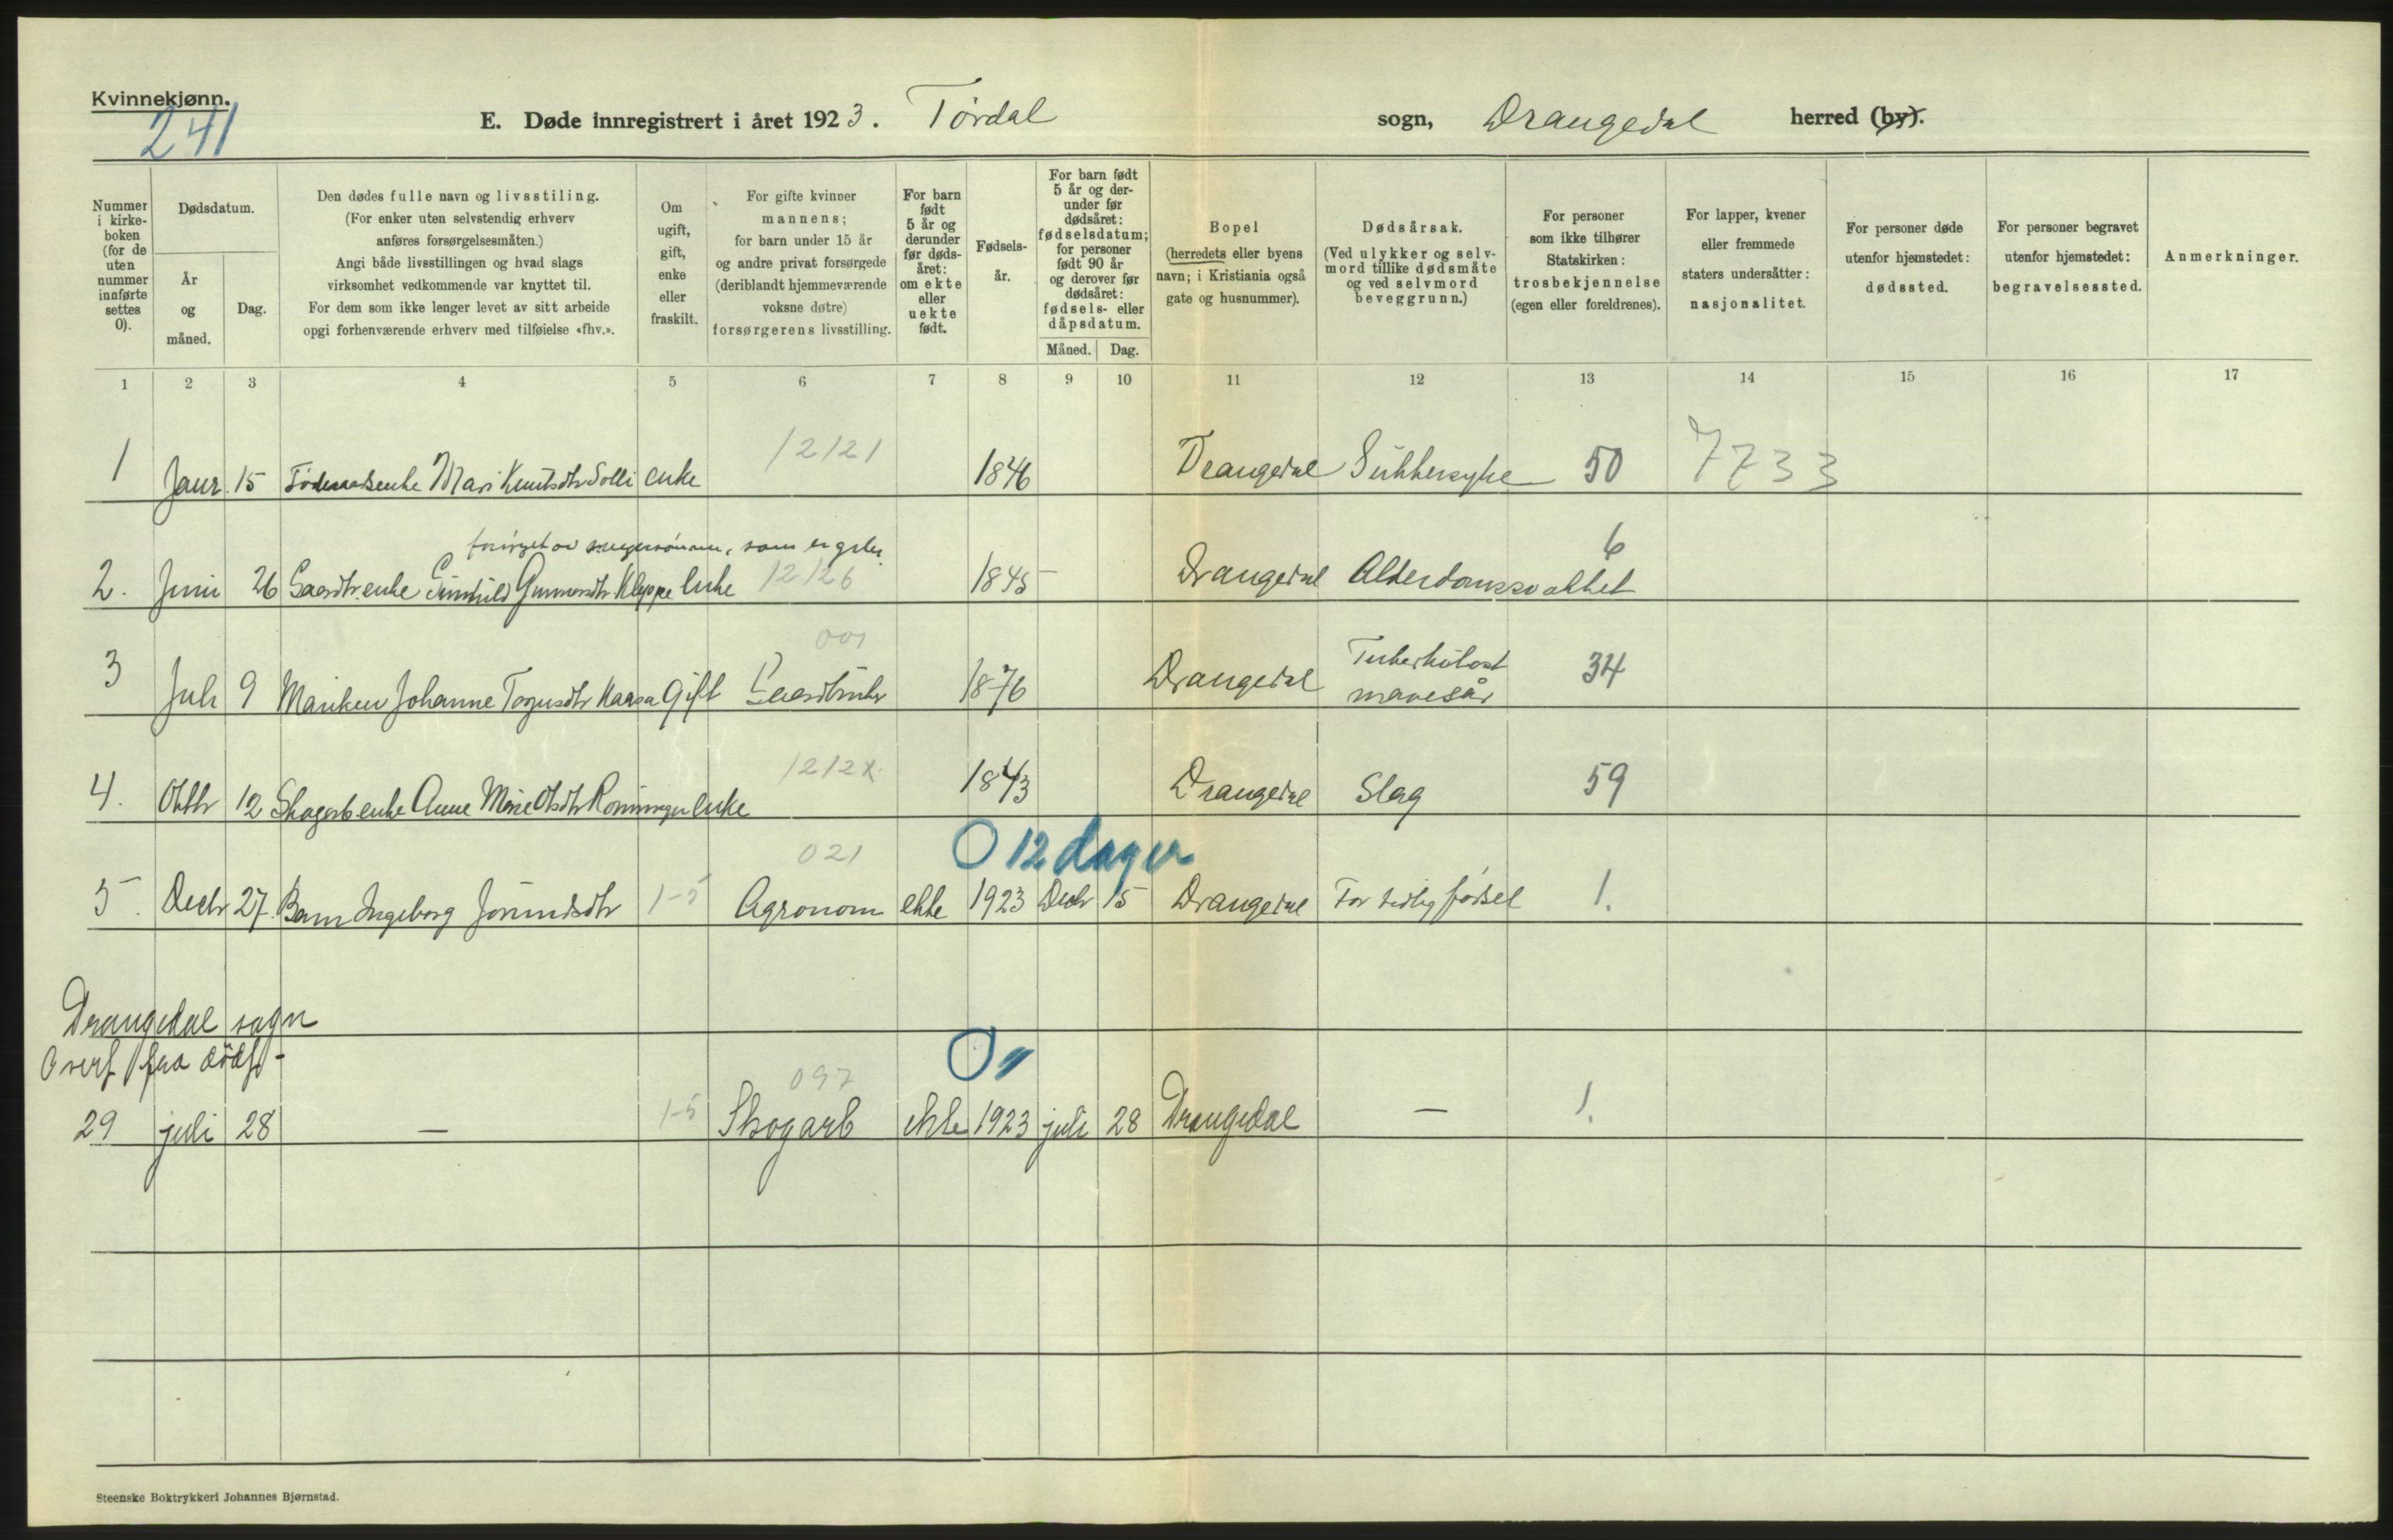 Kvinnekjønn.
241
E. Døde innregistrert i året 1923. Tørdal sogn, Drangedal herred (by).
Nummer i kirkeboken (for de uten nummer innførte settes 0).
Dødsdatum.
År og måned.
Dag.
Den dødes fulle navn og livsstiling.
(For enker uten selvstendig erhverv
anføres forsørgelsesmåten.)
Angi både livsstillingen og hvad slags
virksomhet vedkommende var knyttet til.
For dem som ikke lenger levet av sitt arbeide
opgi forhenværende erhverv med tilføielse «fhv.».
Om
ugift,
gift,
enke
eller
fraskilt.
For gifte kvinner
mannens;
for barn under 15 år
og andre privat forsørgede
(deriblandt hjemmeværende
voksne døtre)
forsørgerens livsstilling.
For barn
født
5 år og
derunder
før døds-
året:
om ekte
eller
uekte
født.
Fødsels-
år.
For barn født
5 år og der-
under før
dødsåret:
fødselsdatum;
for personer
født 90 år
og derover før
dødsåret:
fødsels- eller
dåpsdatum.
Måned. Dag.
Bopel
(herredets eller byens
navn; i Kristiania også
gate og husnummer).
Dødsårsak.
(Ved ulykker og selv-
mord tillike dødsmåte
og ved selvmord
beveggrunn.)
For personer
som ikke tilhører
Statskirken:
trosbekjennelse
(egen eller foreldrenes).
For lapper, kvener
eller fremmede
staters undersåtter:
nasjonalitet.
For personer døde
utenfor hjemstedet:
dødssted.
For personer begravet
utenfor hjemstedet:
begravelsessted.
Anmerkninger.
1 2 3 4 5 6 7 8 9 10 11 12 13 14 15 16 17
12121
1 Janr. 15 Føderaadsenke Mari Knutsdtr Solli enke 1846 Drangedal Sukkersyke 50 7733
som er gbr.
6
2. Juni 26 Gaardbr.enke Gunhild Gunnarsdtr Kleppe Enke 12126 1845 Drangedal Alderdomssvakhet
001
3 Juli 9 Mariken Johanne Kaasa Gift Gaardbruker 1876 Drangedal Tuberkuløst mavesår 34
1212X
4. Oktbr 12 Skogarb enke Anne Marie Olsdtr Rønningen Enke 1843 Drangedal Slag 59
021 0 12 dager
5. Decbr 27. Barn Ingeborg Jørundsdtr 1-5 Agronom ekte 1923 Decbr 15 Drangedal For tidlig fødsel 1.
Drangedal sogn
Overf fra dødf -
097 0 "
29 juli 28 — 1-5 Skogarb ekte 1923 juli 28 Drangedal — 1.
Steenske Boktrykkeri Johannes Bjørnstad.